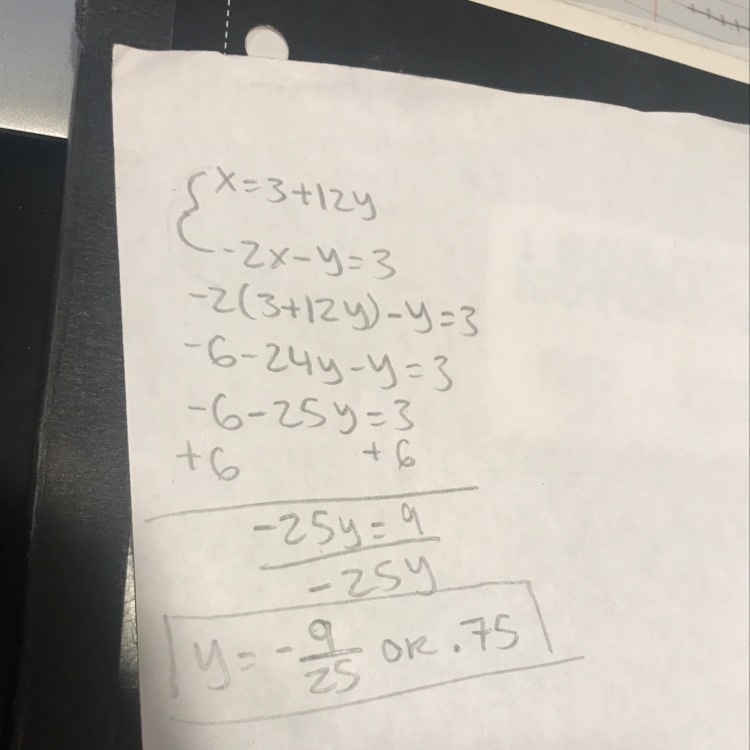 x=3+12y
-2x-y=3
-2(3+12y)-y=3
-6-24y-y=3
-6-25y=3
+6 +6
-25y=9
-25y
y=-9/25 or .75